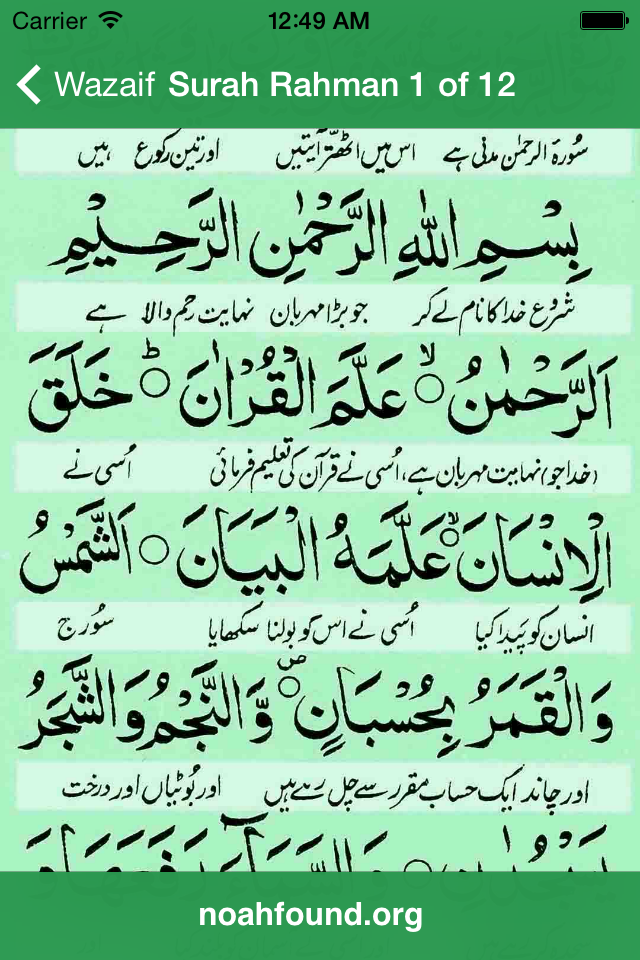 Carrier 12:49 AM
Wazaif Surah Rahman 1 of 12
سورۃ الرحمٰن مدنی ہے اس میں اٹھتّر آیتیں اور تین رکوع ہیں
بِسْمِ اللّٰهِ الرَّحْمٰنِ الرَّحِيْمِ
شروع خدا کا نام لے کر جو بڑا مہربان نہایت رحم والا ہے
اَلرَّحْمٰنُ ۙ○ عَلَّمَ الْقُرْاٰنَ ○ؕ خَلَقَ
(خدا جو) نہایت مہربان ہے، اُسی نے قرآن کی تعلیم فرمائی اُسی نے
الْاِنْسَانَ ۙ○ عَلَّمَهُ الْبَيَانَ ○ اَلشَّمْسُ
انسان کو پیدا کیا اُسی نے اس کو بولنا سکھایا سُورج
وَالْقَمَرُ بِحُسْبَانٍ ۪○ وَّالنَّجْمُ وَالشَّجَرُ
اور چاند ایک حساب مقرر سے چل رہے ہیں اور بُوٹیاں اور درخت
noahfound.org